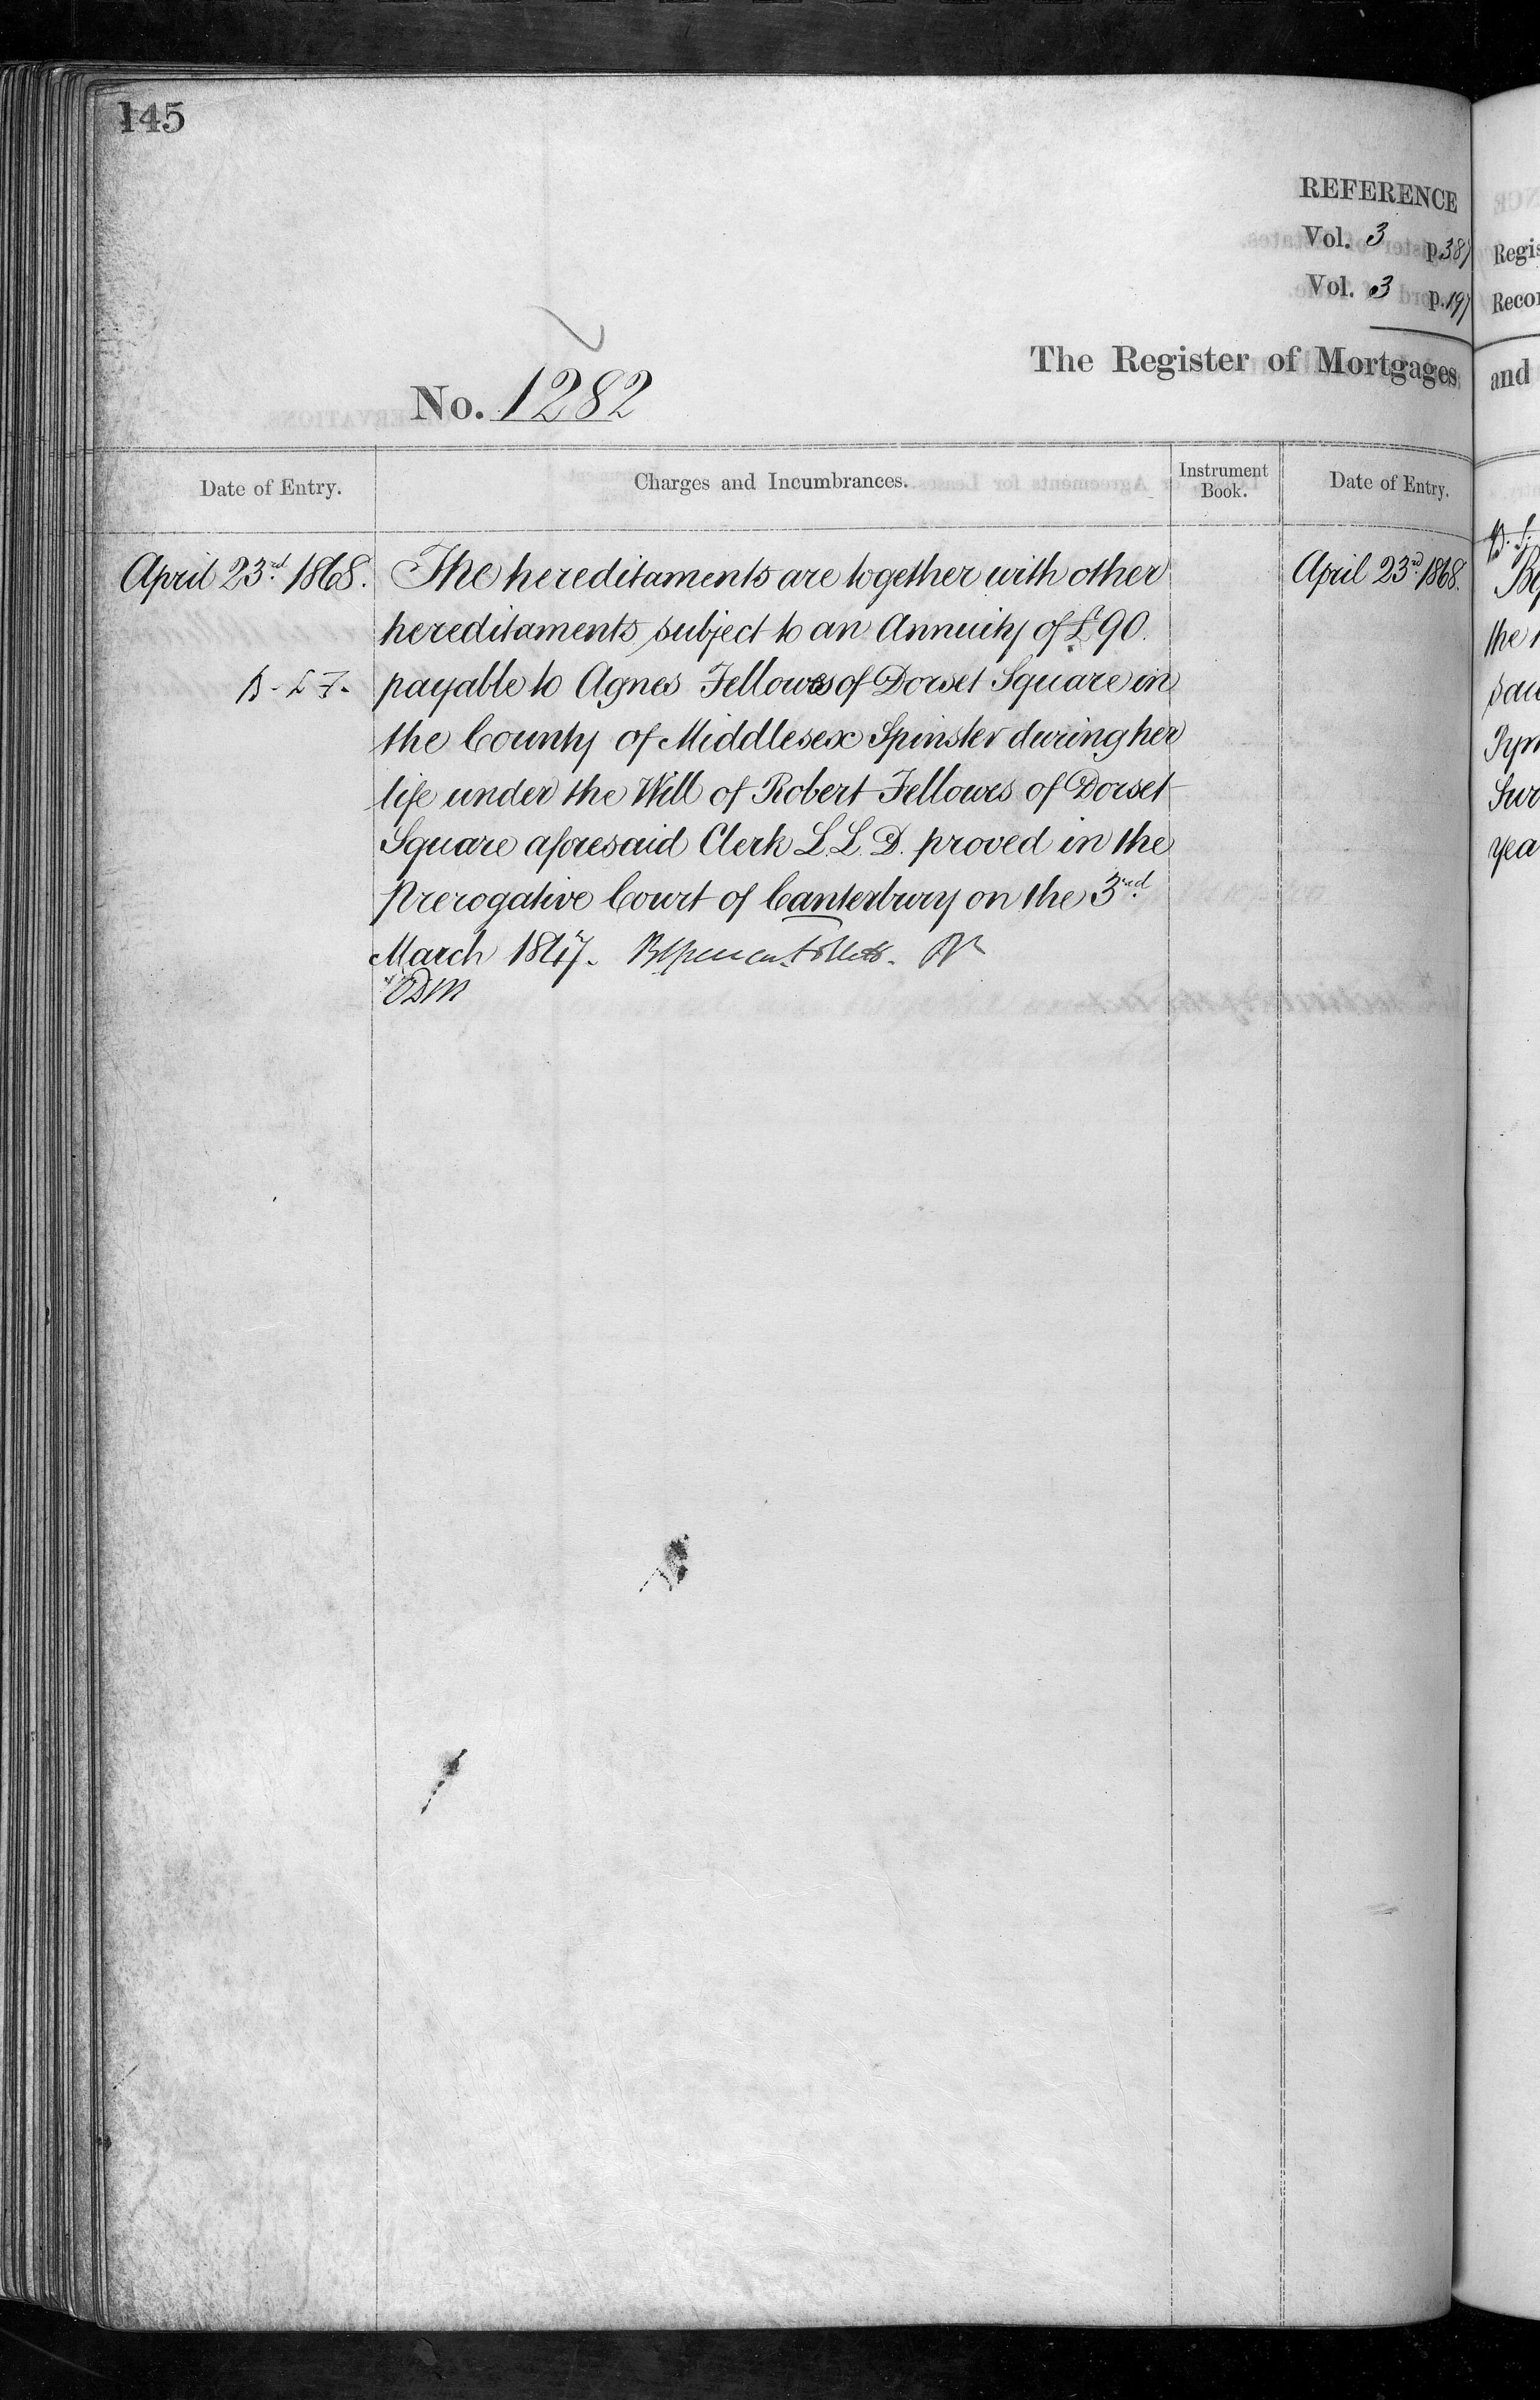 145
REFERENCE
Vol. 3 p. 387
Vol. 3 p. 197
The Register of Mortgages
No. 1282
Date of Entry. Charges and Incumbrances. Instrument Book. Date of Entry.
April 23rd 1868. The hereditaments are together with other April 23rd 1868.
hereditaments subject to an Annuity of £90.
payable to Agnes Fellowes of Dorset Square in
the County of Middlesex Spinster during her
life under the Will of Robert Fellowes of Dorset
Square aforesaid Clerk L.L.D. proved in the
Prerogative Court of Canterbury on the 3rd
March 1847.
Regis
Recor
and
the